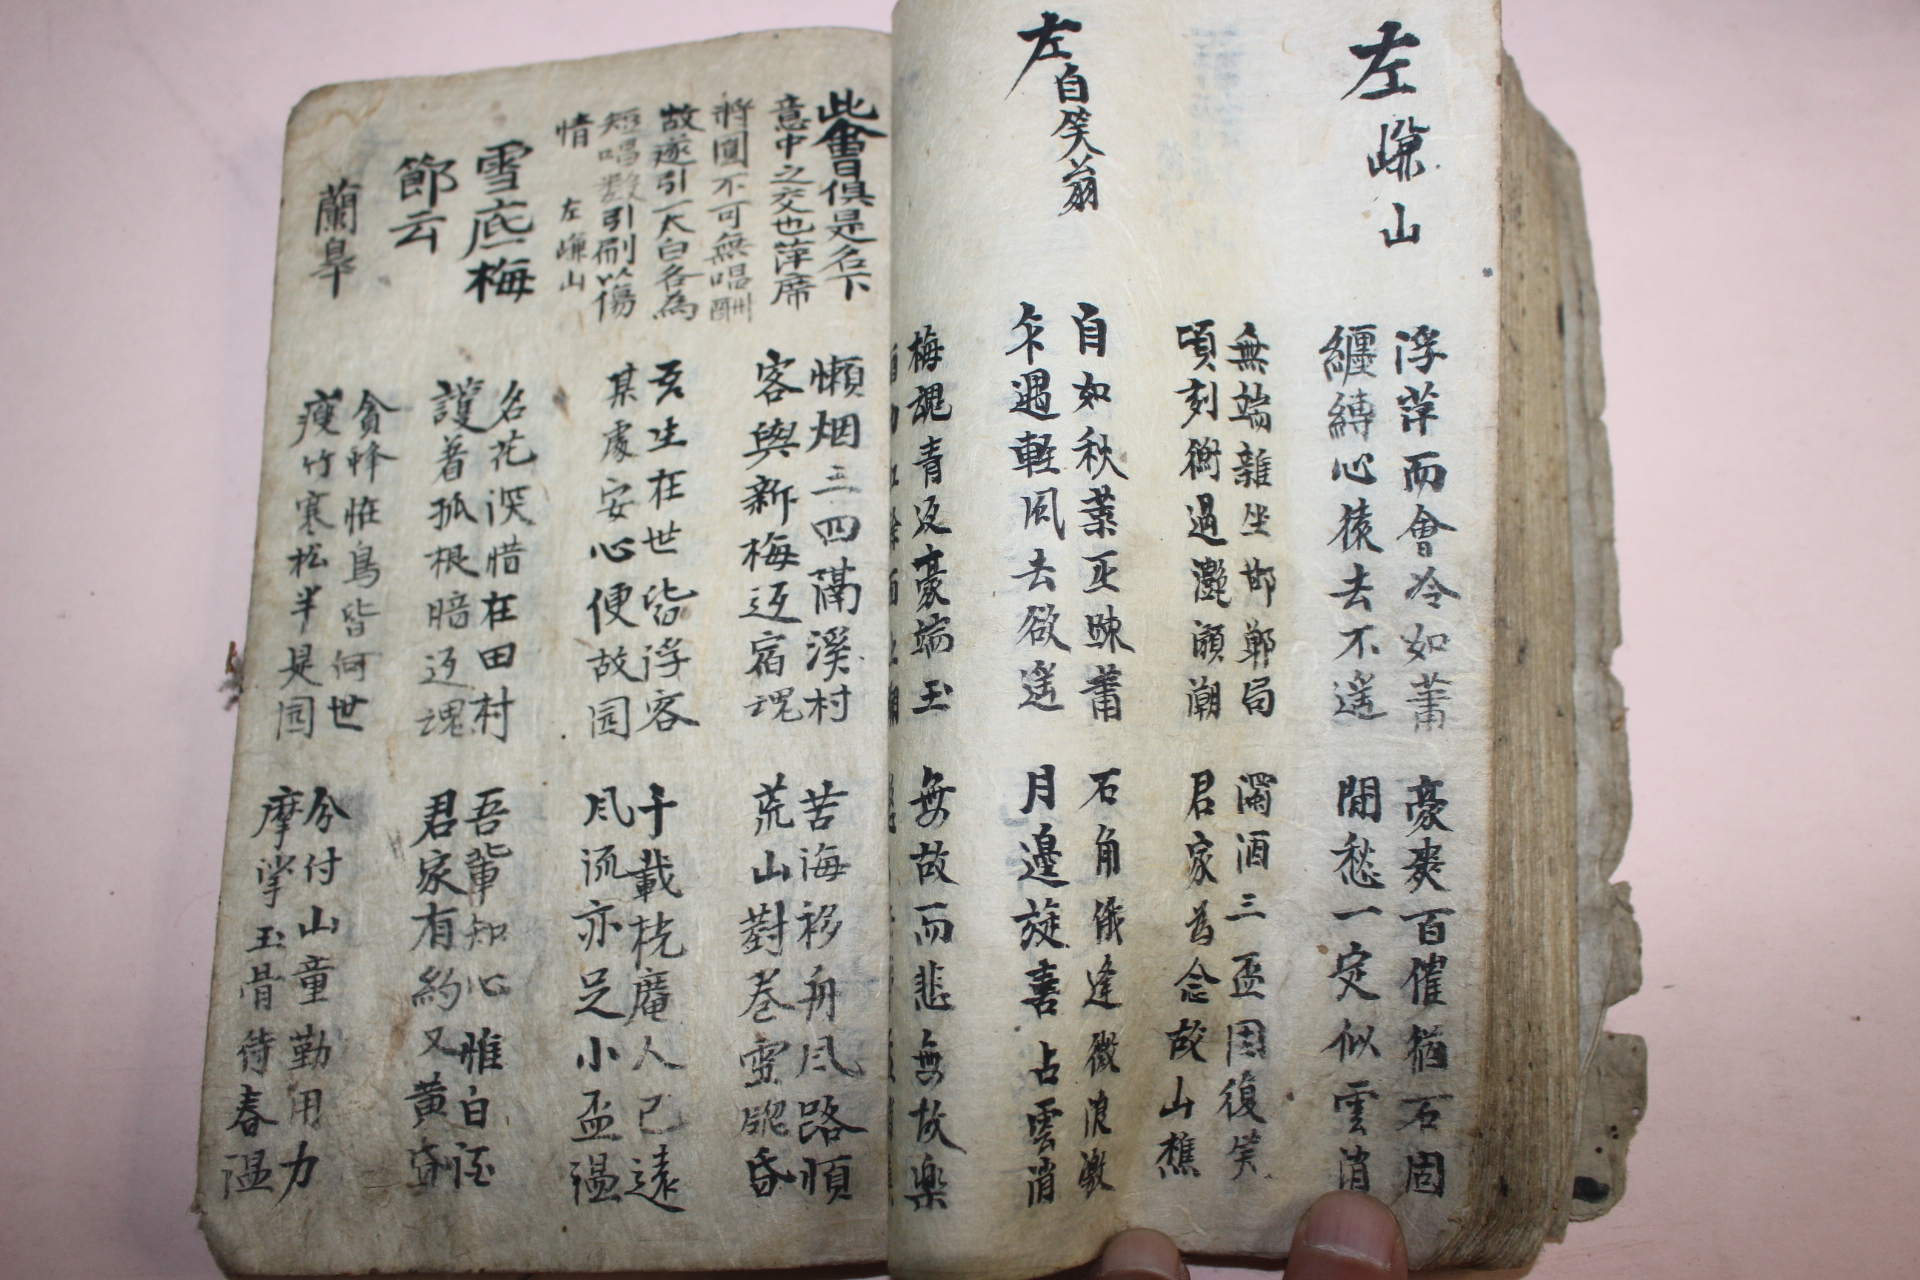 左嵰山
浮萍而會冷如蕭
纏縛心猿去不遥
豪爽百催猶石固
閒愁一定似雲消
無端雜坐邯鄲局
頃刻衡過灔澦潮
濁酒三盃因復笑
君家為念故山樵
左自笑翁
自如秋葉正踈蕭
乍遇軽風去欲遥
石角儀逢微浪激
月邊旋喜占雲消
梅魂青返豪端玉
無故而悲無故樂
此會俱是名下
意中之交也萍席
將圓不可無唱酬
故遂引一大白各為
短唱数引刷以傷
情 左嵰山
懶烟三四隔溪村
客與新梅返宿魂
苦海移舟風路順
荒山對巷雪牕昏
玄生在世皆浮客
某處安心便故园
千載桃庵人已遠
風流亦足小盃温
雪底梅
節云
名花深惜在田村
護着孤根暗返魂
吾輩知心惟白
君家有約又黄昏
蘭皐
貪蜂恠鳥皆何世
瘦竹寒松半是园
分付山童勤用力
摩挲玉骨待春温